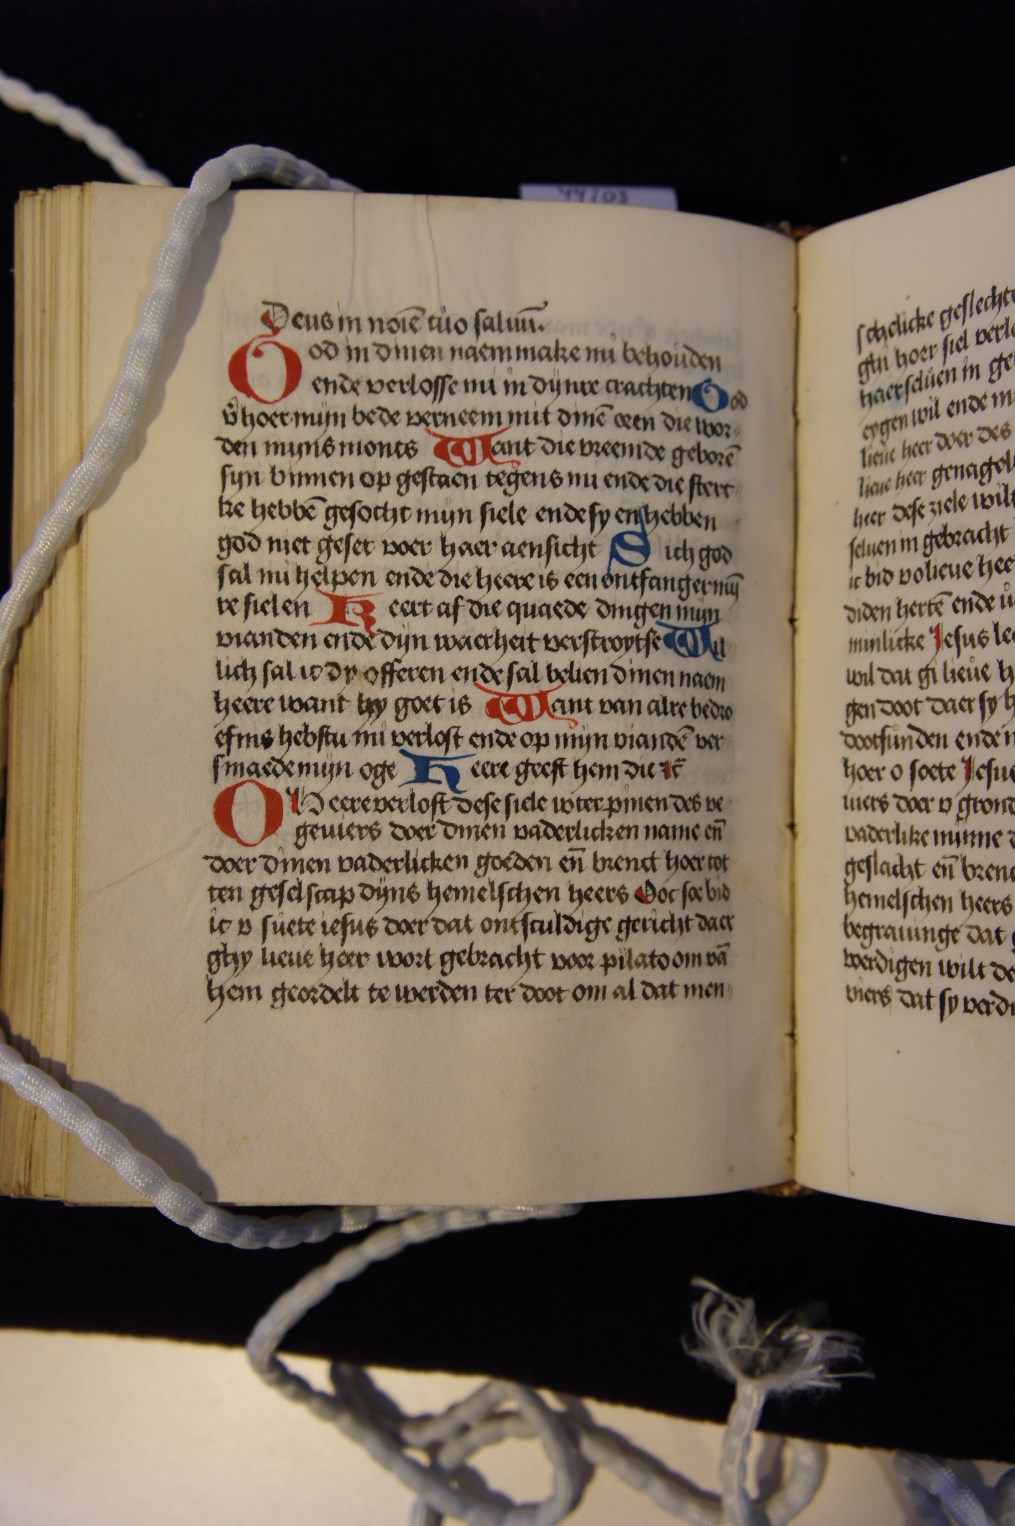 44/03
Deus in noīe tuo saluū.
Ood in dinen naem make mi behouden
ende verlosse mi in dynre crachten Ood
v̄hoer mijn bede verneem mit dinē oren die wor
den mijns monts Want die vreemde geborē
sijn binnen op gestaen tegens mi ende die sterc
ke hebbē gesocht mijn siele ende sy en hebben
god niet geset voer haer aensicht Sich god
sal mi helpen ende die heere is een ontfanger mij
re sielen Keert af die quaede dingen mijn
vianden ende dijn waerheit verstroytse Wil
lich sal ic dy offeren ende sal belien dinen naem
heere want hy goet is Want van alre bedro
efnis hebstu mi verlost ende op mijn viandē ver
smaede mijn oge Heere geeft hem die rē
O Heere verlost dese siele wter pinen des ve
geuiers doer dinen vaderlicken name en̄
doer dinen vaderlicken goeden en̄ brenct hoer tot
ten geselscap dijns hemelschen heers Ooc soe bid
ic v suete iesus doer dat ontsculdige gericht daer
ghy lieue heer wort gebracht voor pilato om vā
hem geordelt te werden ter doot om al dat men
schelicke geslecht
gin hoer siel verl
haer seluen in ge
eygen wil ende m
lieue heer doer des
lieue heer genagel
hier dese ziele wilt
seluen in gebracht
ic bid v o lieue hee
diden hertē ende u
minlicke Jesus le
wil dat gi lieue h
gen doot daer sy h
dootsunden ende n
hoer o soete Jesus
uiers doer v gron
vaderlike minne d
geslacht en̄ bren
hemelschen heers
begrauinge dat g
werdigen wilt de
viers dat sy verdi